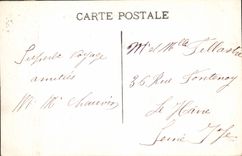 CARTE POSTALE
Superbe voyage
amitiés
M. Me Chauvin
Mr et Mlle
36 Rue Fontenoy
Le Havre
Seine Infre